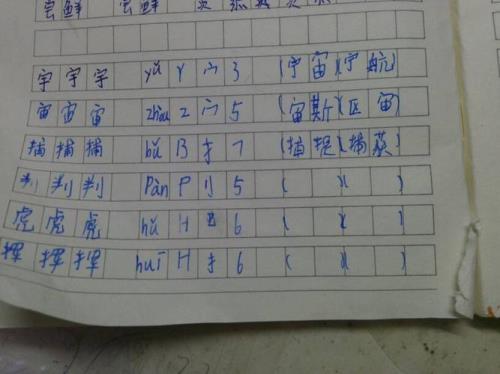 尝鲜 尝鲜
宇 宇 宇 yǔ Y 宀 3 (宇宙)(宇航)
宙 宙 宙 zhòu Z 宀 5 (宙斯)(区宙)
捕 捕 捕 bǔ B 扌 7 (捕捉)(捕获)
判 判 判 Pàn P 刂 5 ( )( )
虎 虎 虎 hǔ H 6 ( )( )
挥 挥 挥 huī H 扌 6 ( )( )